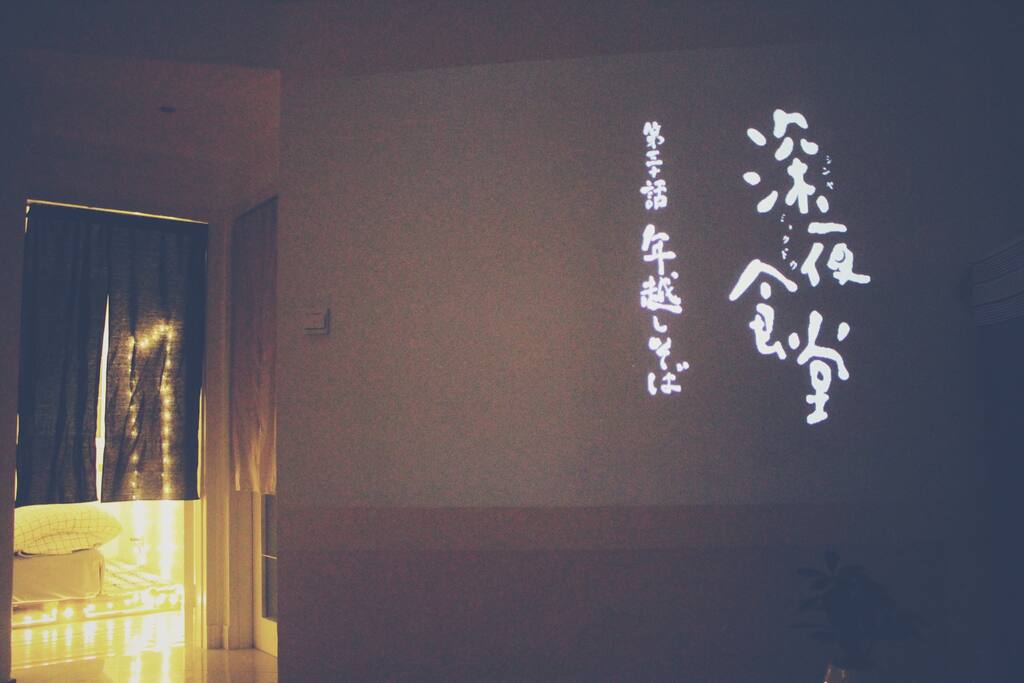 深夜食堂
シンヤ
ショクドウ
第三十話 年越しそば